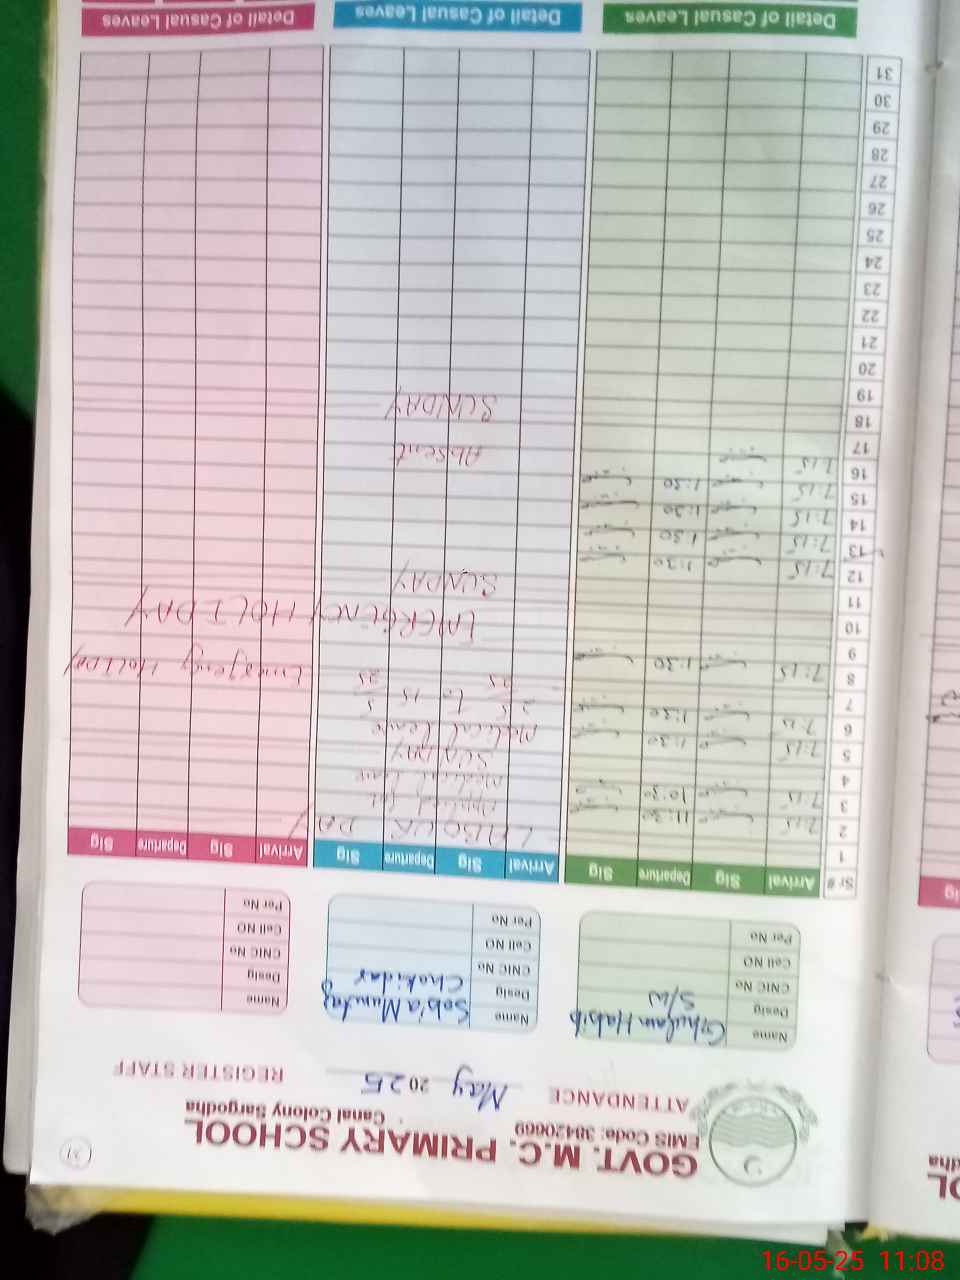 31
GOVT. M.C. PRIMARY SCHOOL
EMIS Code: 38420669 Canal Colony Sargodha
ATTENDANCE May 2025 REGISTER STAFF
Name Ghulam Habib
Desig S/W
CNIC No
Cell NO
Per No
Name Sobia Mumtaz
Desig Chokidar
CNIC No
Cell NO
Per No
Name
Desig
CNIC No
Cell NO
Per No
Sr # Arrival Sig Departure Sig Arrival Sig Departure Sig Arrival Sig Departure Sig
1 LABOUR DAY
2 7:15 11:30 Applied for
3 7:15 10:30 Medical leave
4 SUNDAY
5 7:15 1:30 Medical leave
6 7:15 1:30 2/5/25 to 15/5/25
7
8 7:15 1:30 Emergency Holiday
9
10 EMERGENCY HOLIDAY
11 SUNDAY
12 7:15 1:30
13 7:15 1:30
14 7:15 1:30
15 7:15 1:30
16 7:15 Absent
17
18 SUNDAY
19
20
21
22
23
24
25
26
27
28
29
30
31
Detail of Casual Leaves Detail of Casual Leaves Detail of Casual Leaves
16-05-25 11:08